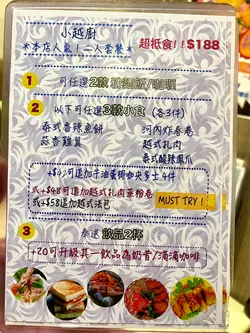 小越廚
*本店人氣!二人套餐* 超抵食!!$188
1 可任選2款 粉麵飯/咖喱
2 以下可任選3款小食 (各3件)
泰式香辣魚餅 河內炸春卷
蒜香雞翼 越式扎肉
泰式酸辣鳳爪
或+$48可追加越式扎肉蒸粉卷
或+$58追加越式法包
MUST TRY!
3 奉送 飲品2杯
+20可升級其一飲品為奶昔/滴滴咖啡